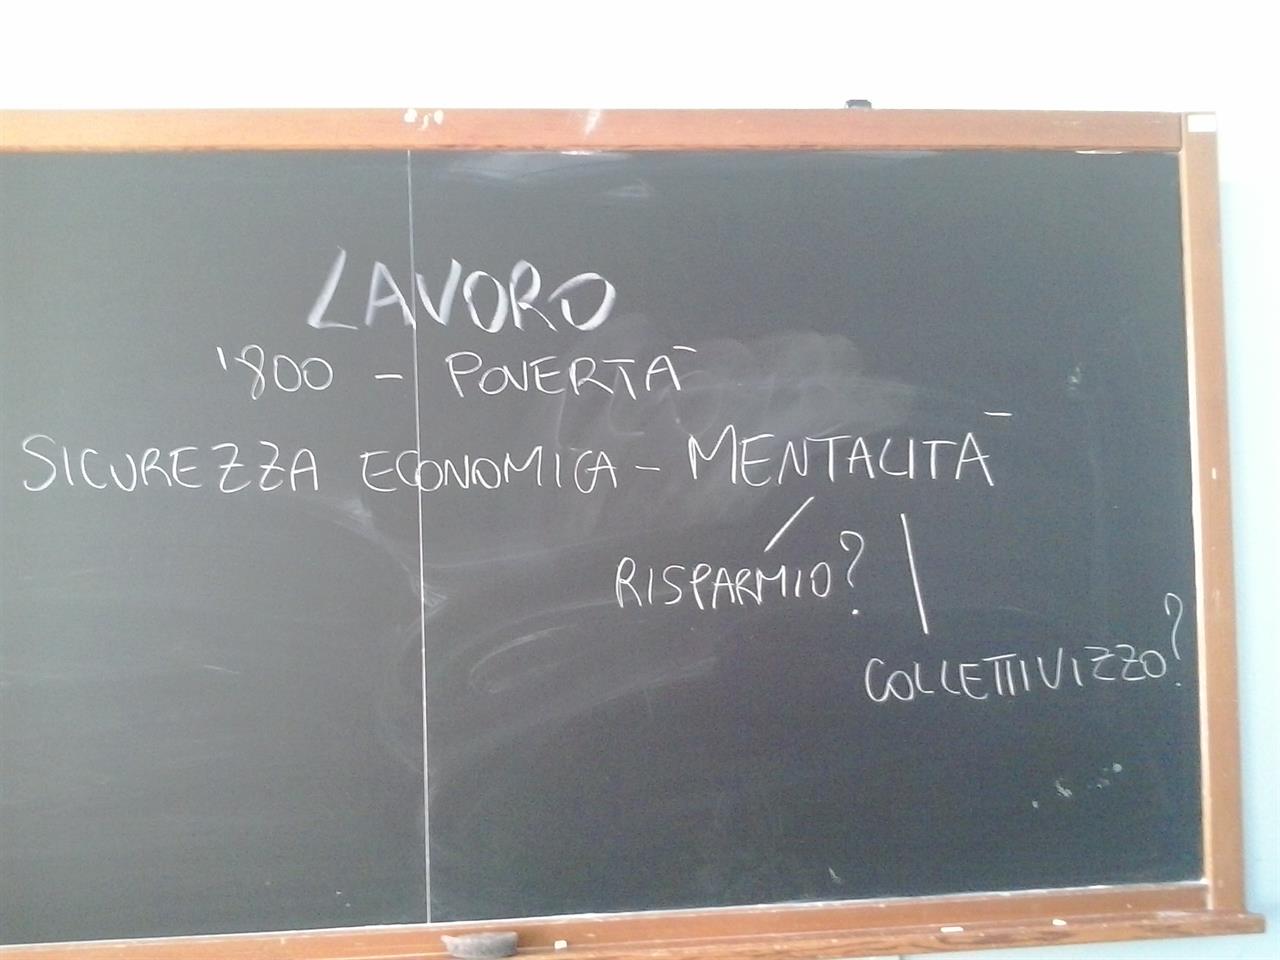 LAVORO
'800 - POVERTÀ
SICUREZZA ECONOMICA - MENTALITÀ
RISPARMIO?
COLLETTIVIZZO?